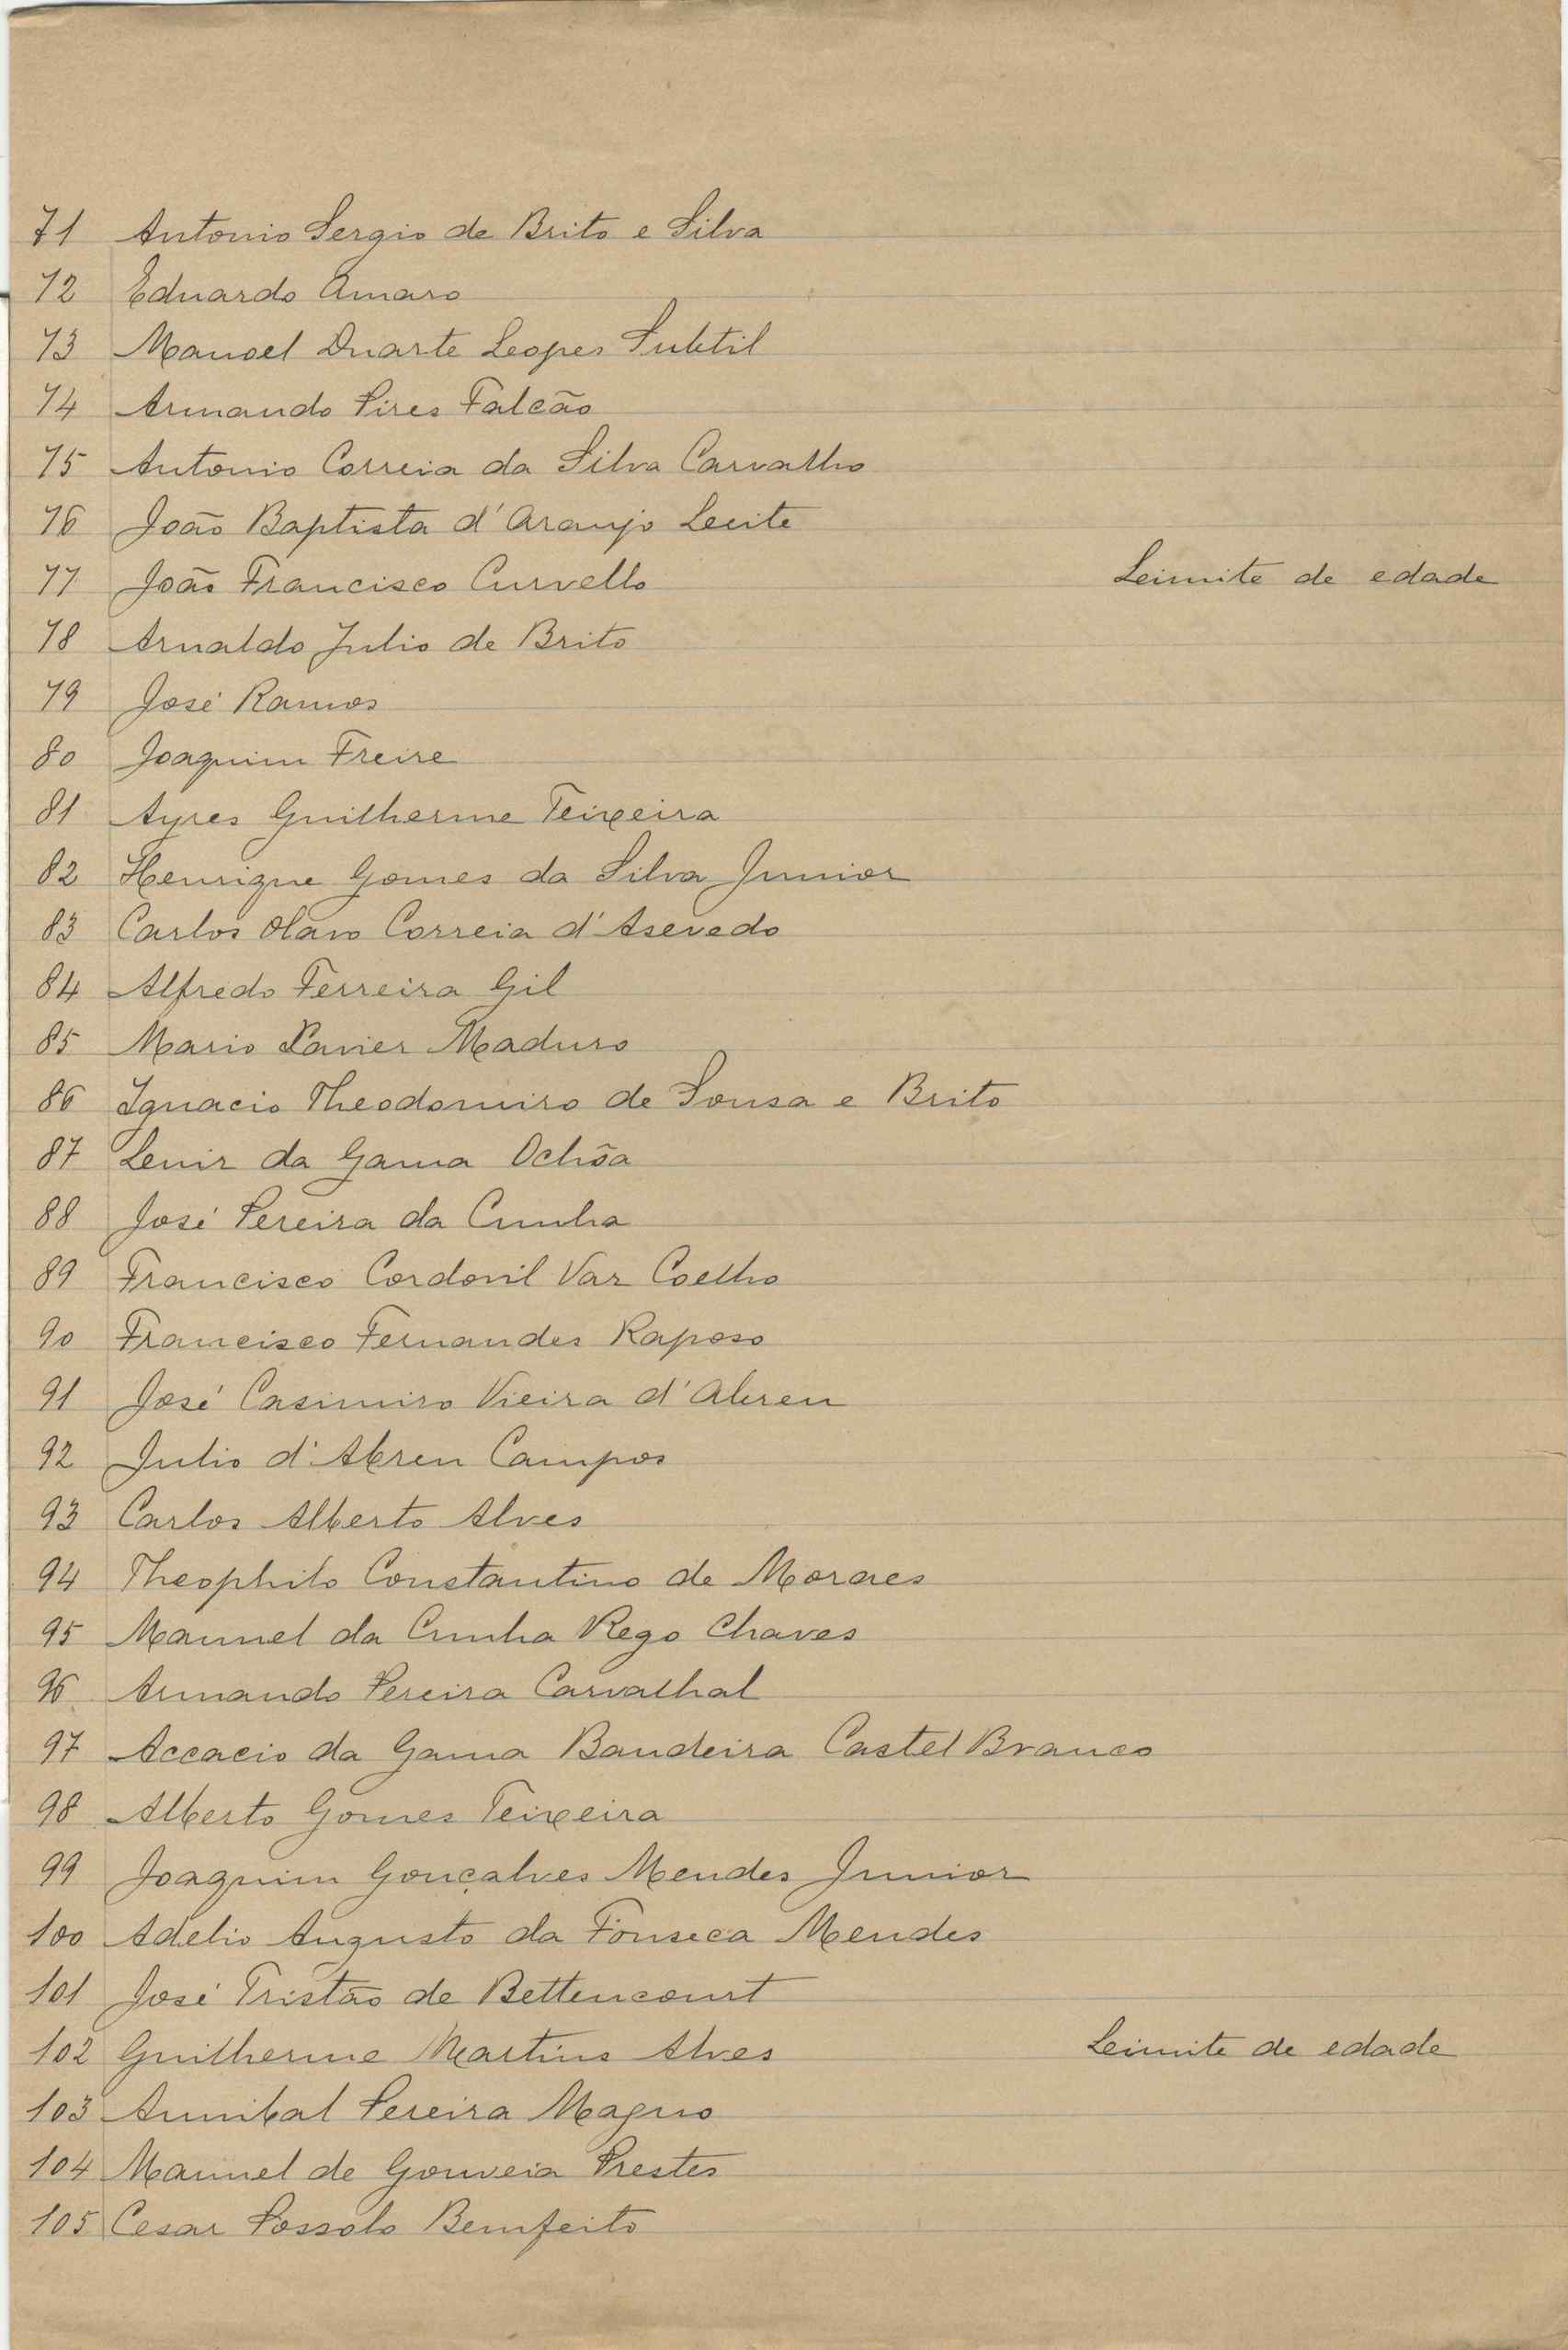 71 Antonio Sergio de Brito e Silva
72 Eduardo Amaro
73 Manoel Duarte Lopes Subtil
74 Armando Pires Falcão
75 Antonio Correia da Silva Carvalho
76 João Baptista d'Araujo Leite
77 João Francisco Curvello Limite de edade
78 Arnaldo Julio de Brito
79 José Ramos
80 Joaquim Freire
81 Ayres Guilherme Teixeira
82 Henrique Gomes da Silva Junior
83 Carlos Olavo Correia d'Asevedo
84 Alfredo Ferreira Gil
85 Mario Xavier Maduro
86 Ignacio Theodomiro de Sousa e Brito
87 Lenir da Gama Ochôa
88 José Pereira da Cunha
89 Francisco Cordovil Vaz Coelho
90 Francisco Fernandes Raposo
91 José Casimiro Vieira d'Abreu
92 Julio d'Abreu Campos
93 Carlos Alberto Alves
94 Theophilo Constantino de Moraes
95 Manuel da Cunha Rego Chaves
96 Armando Pereira Carvalhal
97 Accacio da Gama Bandeira Castel Branco
98 Alberto Gomes Teixeira
99 Joaquim Gonçalves Mendes Junior
100 Adelio Augusto da Fonseca Mendes
101 José Tristão de Bettencourt
102 Guilherme Martins Alves Limite de edade
103 Annibal Pereira Magno
104 Manuel de Gouveia Prestes
105 Cesar Possolo Bemfeito